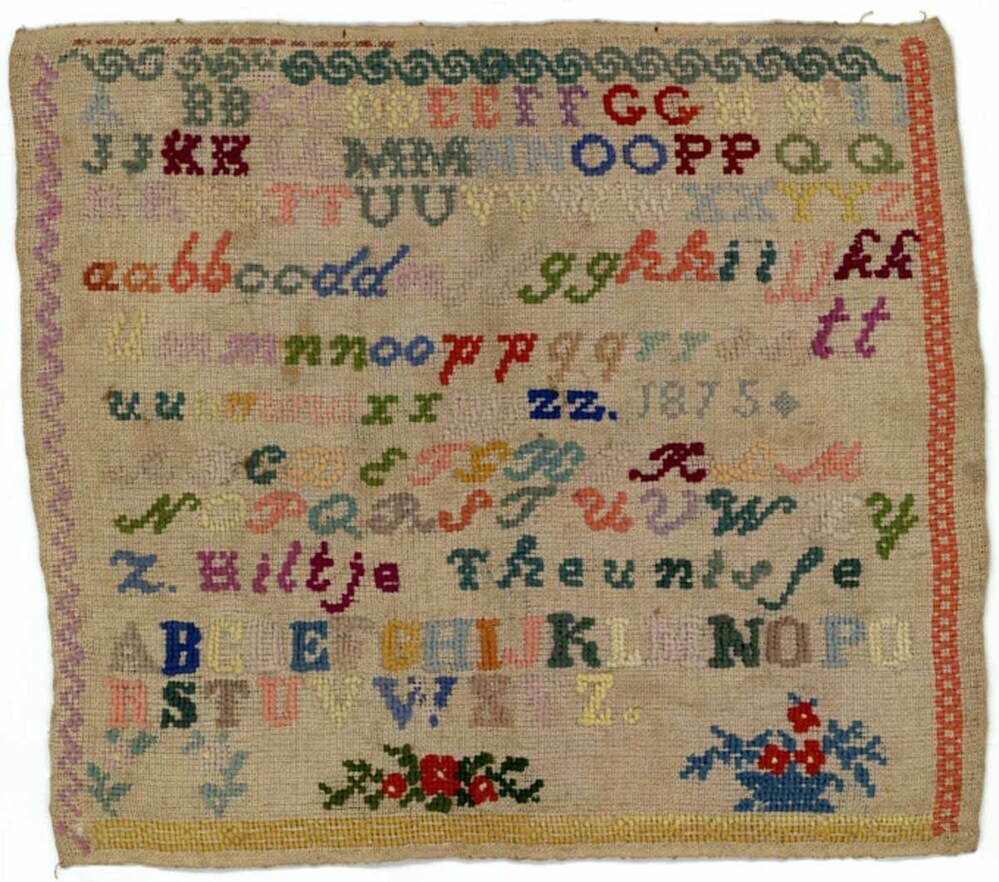 A BB CC DD EE FF GG HH II
JJ KK LL MM NN OO PP QQ
RR SS TT UU VV WW XX YY Z
aa bb cc dd gg hh ii jj kk
ll mm nn oo pp qq rr ss tt
uu vv ww xx yy zz. 1875
A B C D E F G H I K L M
N O P Q R S T U V W X Y
Z. Hiltje Theunisſe
ABCDEFGHIJKLMNOPQ
RSTUVWXYZ.